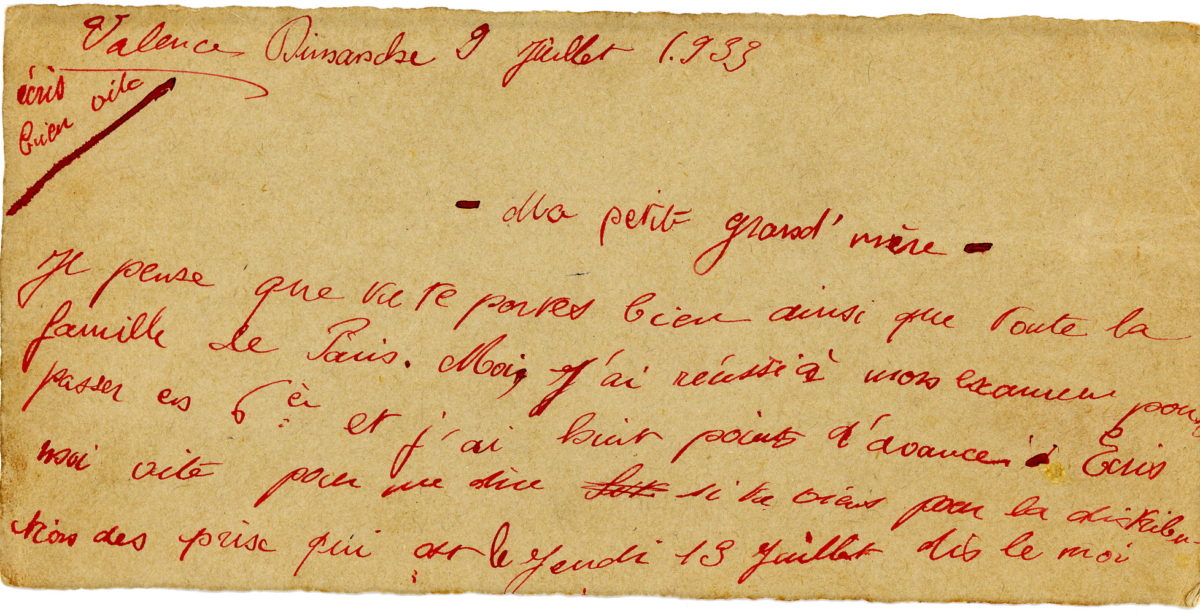 Valence Dimanche 9 Juillet 1933
écris
bien vite
- Ma petite grand' mère -
Je pense que tu te portes bien ainsi que toute la
famille de Paris. Moi, j'ai réussi à mon examen pour
passer en 6èm et j'ai huit points d'avance. Écris
moi vite pour me dire si tu viens pour la distribu-
tion des prix qui est le Jeudi 13 Juillet dis le moi